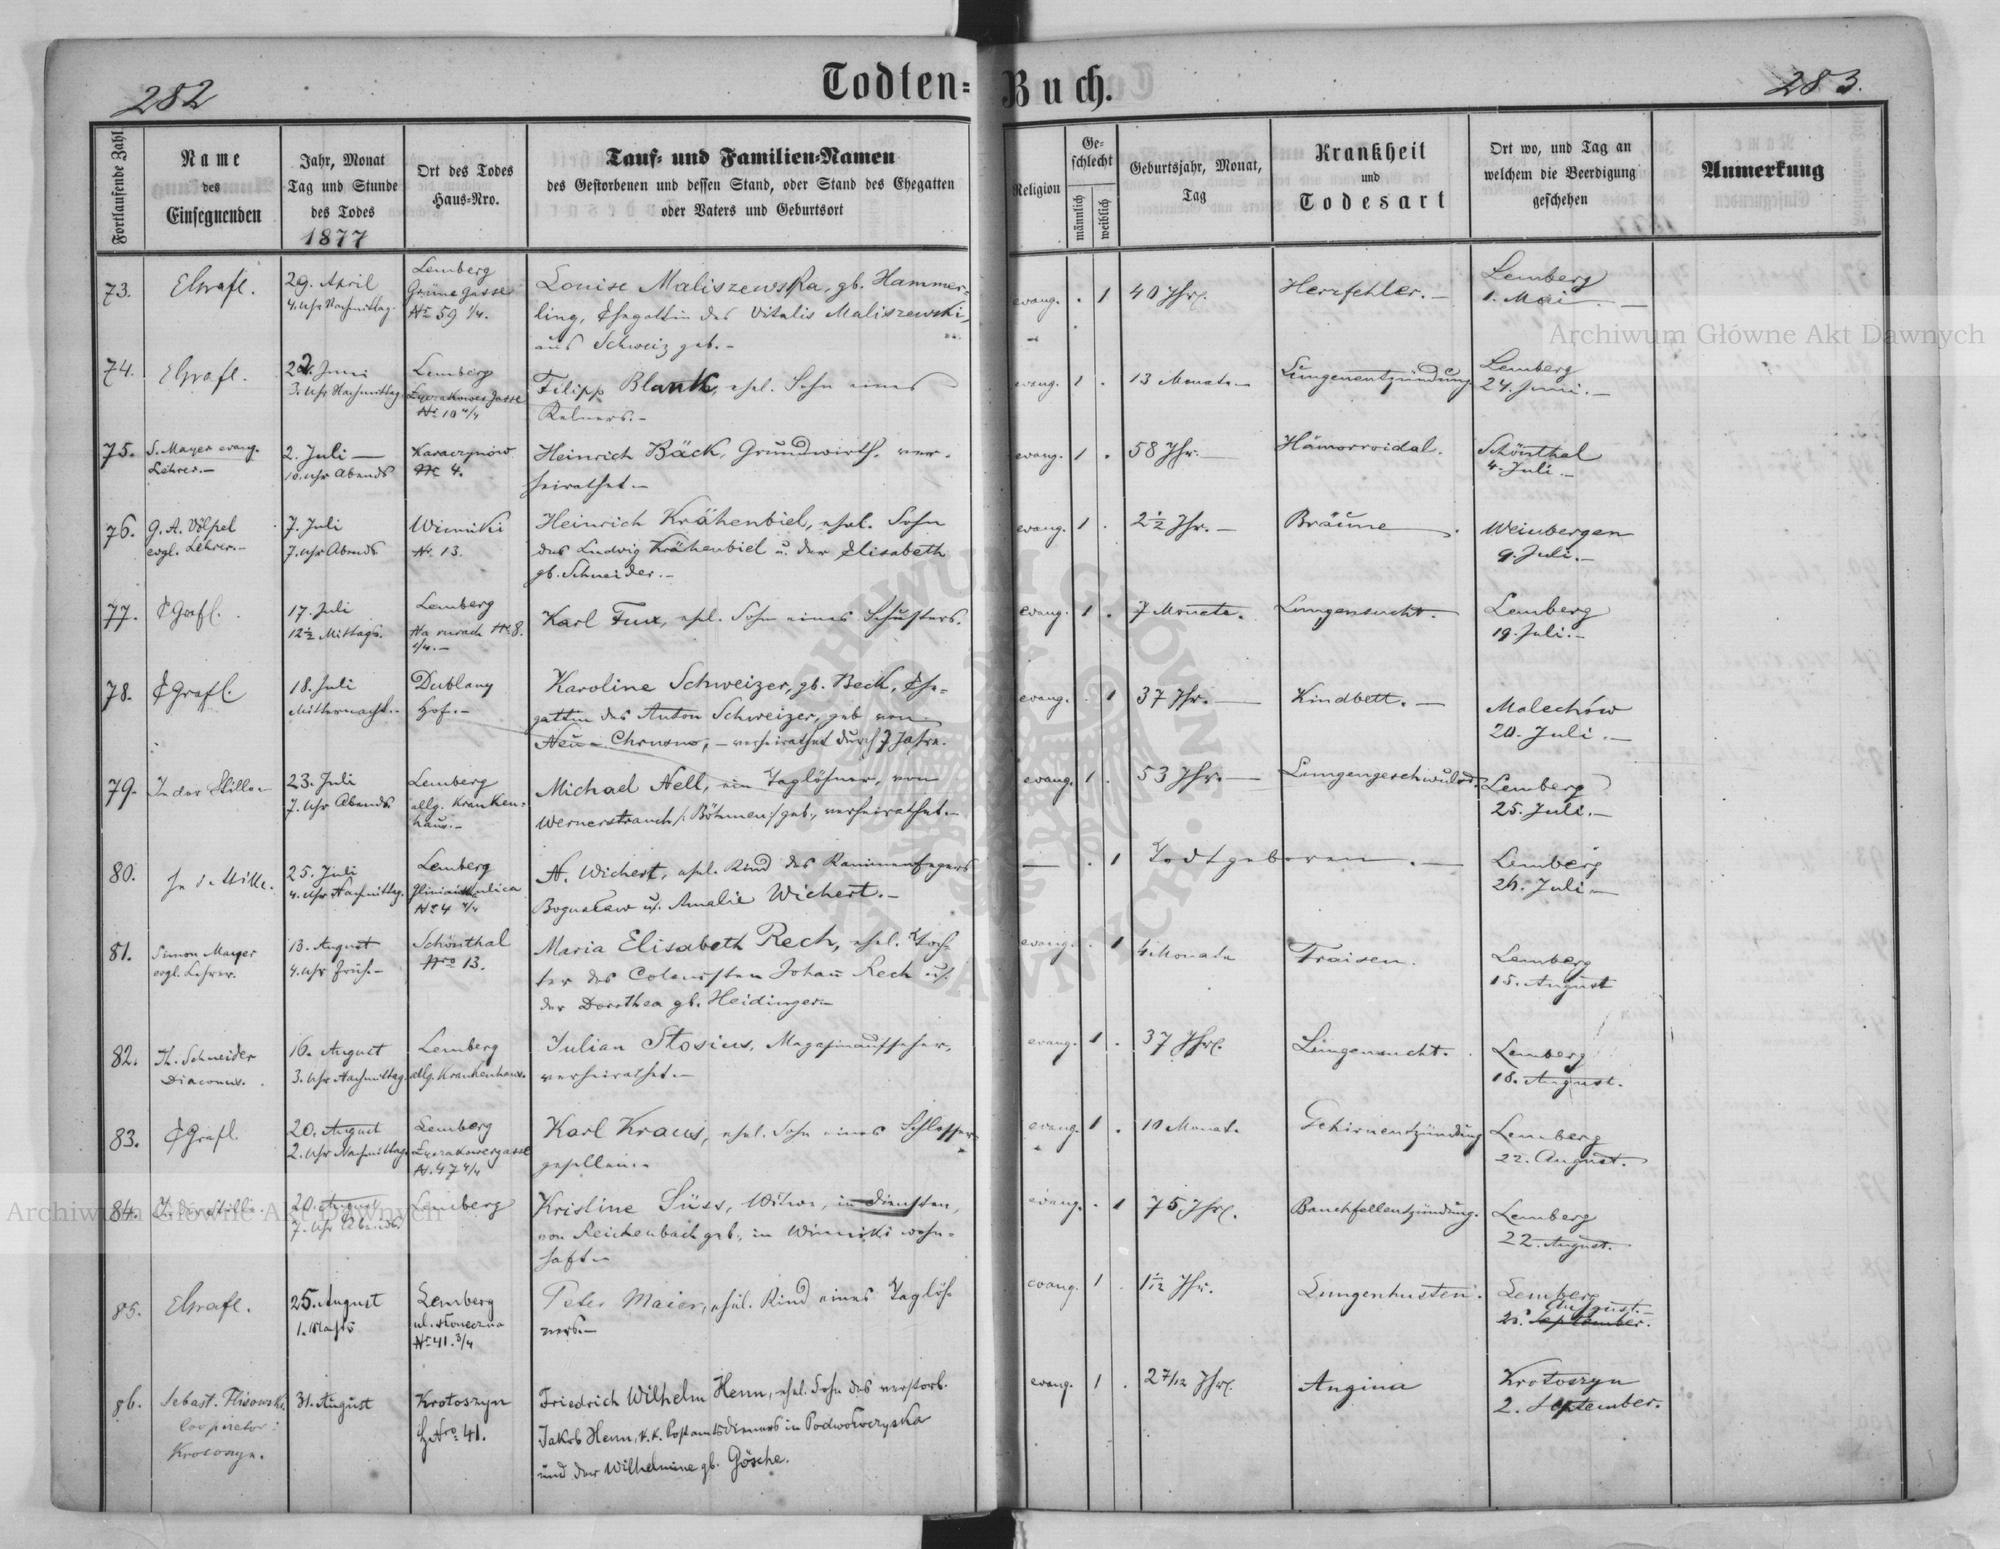 282
Todten-Buch.
283.
Fortlaufende Zahl
Name
des
Einsegnenden
Jahr, Monat
Tag und Stunde
des Todes
1877
Ort des Todes
Haus-Nro.
Tauf- und Familien-Namen
des Gestorbenen und dessen Stand, oder Stand des Ehegatten
oder Vaters und Geburtsort
Religion
Ge-
schlecht
männlich
weiblich
Geburtsjahr, Monat,
Tag
Krankheit
und
Todesart
Ort wo, und Tag an
welchem die Beerdigung
geschehen
Anmerkung
73. EGrafl. 29. April Lemberg Louise Maliszewska, gb. Hammer- evang. . 1 40 Jhr. Herzfehler. Lemberg
4. Uhr Nachmittag. Grüne Gasse ling, Ehegattin des Vitalis Maliszewski, 1. Mai.
No 59 1/4. aus Schweiz geb.
74. EGrafl. 22. Juni Lemberg Filipp Blank, ehel. Sohn eines evang. 1 . 13 Monate Lungenentzündung Lemberg
3. Uhr Nachmittag Kelners. 24. Juni.
No 10 4/4
75. S. Mayer evang. 2. Juli Karaczynów Heinrich Bäck, Grundwirth. ver- evang. 1 . 58 Jhr. Hämorroidal. Schönthal
Lehrer. 10. Uhr Abends No 4. heirathet. 4. Juli.
76. G. A. Völpel 7. Juli Winniki Heinrich Krähenbiel, ehel. Sohn evang. 1 . 2 1/2 Jhr. Bräune Weinbergen
evgl. Lehrer. 7. Uhr Abends No. 13. des Ludwig Krähenbiel u. der Elisabeth 9. Juli.
gb. Schneider.
77. EGrafl. 17. Juli Lemberg Karl Fux, ehel. Sohn eines Schusters. evang. 1 . 7 Monate. Lungensucht. Lemberg
12 1/2 Mittags. Na rurach No 8. 19. Juli.
78. EGrafl. 18. Juli Dublany Karoline Schweizer, gb. Beck, Ehe- evang. . 1 37 Jhr. Kindbett. Malechów
Mitternacht. Hof. gattin des Anton Schweizer, geb von 20. Juli.
Neu - Chrusno, - verheirathet durch 7 Jahre.
79. In der Stille 23. Juli Lemberg Michael Nell, ein Taglöhner, von evang. 1 . 53 Jhr. Lungengeschwulst. Lemberg
7. Uhr Abends allg. Kranken- /: Böhmen :/ geb., verheirathet. 25. Juli.
haus.
80. 25. Juli Lemberg N. Wichert, ehel. Kind des Kaminenfegers — . 1 Todtgeboren. Lemberg
4. Uhr Nachmittag. No 4 4/4 Bogusław u. Amalie Wichert. 26. Juli
81. Simon Mayer 13. August Schönthal Maria Elisabeth Rech, ehel. Toch- evang. . 1 4 Monate Fraisen. Lemberg
evgl. Lehrer. 4. Uhr Früh. Nro 13. ter des Colonisten Johann Rech u. 15. August
der Dorothea gb. Heidinger
82. Th. Schneider 16. August Lemberg Julian Stosius, Magazinaufseher, evang. 1 . 37 Jhr. Lungensucht. Lemberg
Diaconus. 3. Uhr Nachmittag. allg. Krankenhaus. verheirathet. 18. August.
83. EGrafl. 20. August Lemberg Karl Kraus, ehel. Sohn eines Schlosser- evang. 1 . 10 Monate Gehirnentzündung Lemberg
2. Uhr Nachmittag. No. 47 4/4 gesellen. 22. August.
84. In der Stille. 20. August Lemberg Kristine Süss, Witwe, in Diensten, evang. . 1 75 Jhr. Bauchfellentzündung. Lemberg
7. Uhr Abends. von Reichenbach geb., in Winniki wohn- 22. August.
haft
85. EGrafl. 25. August Lemberg Peter Maier, ehel. Kind eines Taglöh- evang. 1 . 1 1/12 Jhr. Lungenhusten. Lemberg
1. Nachts ul. słoneczna ners. August.
No 41. 3/4 September.
86. Sebast. Flisowski 31. August Krotoszyn Friedrich Wilhelm Henn, ehel. Sohn des verstorb. evang. 1 . 2 7/12 Jhr. Angina Krotoszyn
Cooperator: Nro 41. Jakob Henn, k.k. Postamtsdieners in Podwołoczyska 2. September.
Krotoszyn. und der Wilhelmine gb. Gösche.
Archiwum Główne Akt Dawnych
Archiwum Główne Akt Dawnych
ARCHIWUM GŁÓWNE AKT DAWNYCH